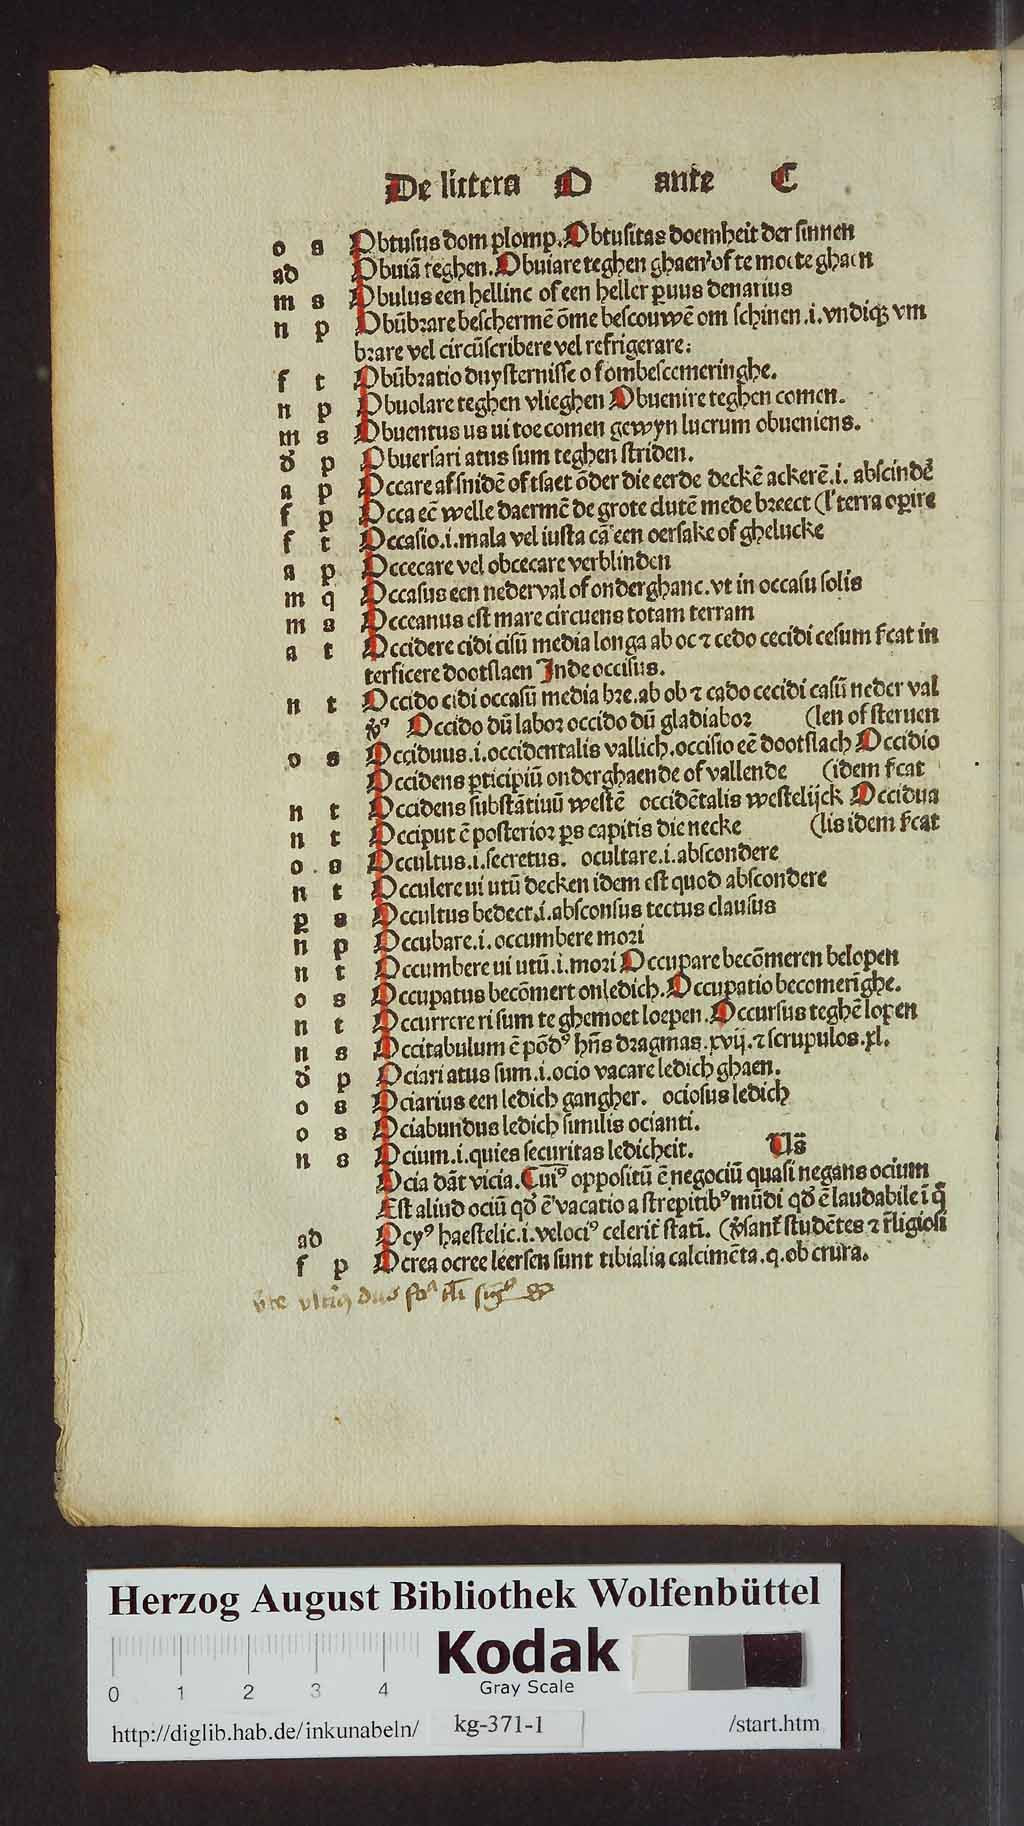 De littera O ante C
o s Obtusus dom plomp. Obtusitas doemheit der sinnen
ad Obuiā teghen. Obuiare teghen ghaen of te moete ghaen
m s Obulus een hellinc of een heller paruus denarius
n p Obūbrare beschermē ōme bescouwē om schinen .i. vndiqʒ vm
brare vel circūscribere vel refrigerare:
f t Obūbratio duysternisse of ombesceemeringhe.
n p Obuolare teghen vlieghen Obuenire teghen comen.
m s Obuentus us ui toecomen gewyn lucrum obueniens.
d p Obuersari atus sum teghen striden.
a p Occare af snidē of tsaet ōder die eerde deckē ackerē .i. abscindē
f p Occa eē welle daermē de grote clutē mede breect (l' terra opire
f t Occasio .i. mala vel iusta cā een oersake of ghelucke
a p Occecare vel obcecare verblinden
m q Occasus een nederval of onderghanc. vt in occasu solis
m s Occeanus est mare circuens totam terram
a t Occidere cidi cisū media longa ab oc ⁊ cedo cecidi cesum fcat in
terficere dootslaen Inde occisus.
n t Occido cidi occasū media bre. ab ob ⁊ cado cecidi casū neder val
v̓sꝰ Occido dū labor occido dū gladiabor (len of steruen
o s Occiduus .i. occidentalis vallich. occisio eē dootslach Occidio
Occidens pticipiū onderghaende of vallende (idem fcat
n t Occidens substātiuū westē occidētalis westelijck Occidua
n t Occiput ē posterior ps capitis die necke (lis idem fcat
o . s Occultus .i. secretus. ocultare .i. abscondere
n t Occulere ui utū decken idem est quod abscondere
p s Occultus bedect .i. absconsus tectus clausus
n p Occubare .i. occumbere mori
n t Occumbere ui utū .i. mori Occupare becōmeren belopen
o s Occupatus becōmert onledich. Occupatio becomerīghe.
n t Occurrere ri sum te ghemoet loepen. Occursus teghē lopen
n s Occitabulum ē pōdꝰ hñs dragmas .xvij. ⁊ scrupulos .xl.
d p Ociari atus sum .i. ocio vacare ledich ghaen.
o s Ociarius een ledich gangher. ociosus ledich
o s Ociabundus ledich similis ocianti.
n s Ocium .i. quies securitas ledicheit. Uñ
Ocia dāt vicia. Cuiꝰ oppositū ē negociū quasi negans ocium
Est aliud ociū qd ē vacatio a strepitibꝰ mūdi qd ē laudabile ī q
ad Ocyꝰ haestelic .i. velociꝰ celerit statī. (v̓sant studētes ⁊ rligiosi
f p Ocrea ocree leersen sunt tibialia calcimēta .q. ob crura.
Herzog August Bibliothek Wolfenbüttel
Kodak
Gray Scale
0 1 2 3 4
http://diglib.hab.de/inkunabeln/ kg-371-1 /start.htm